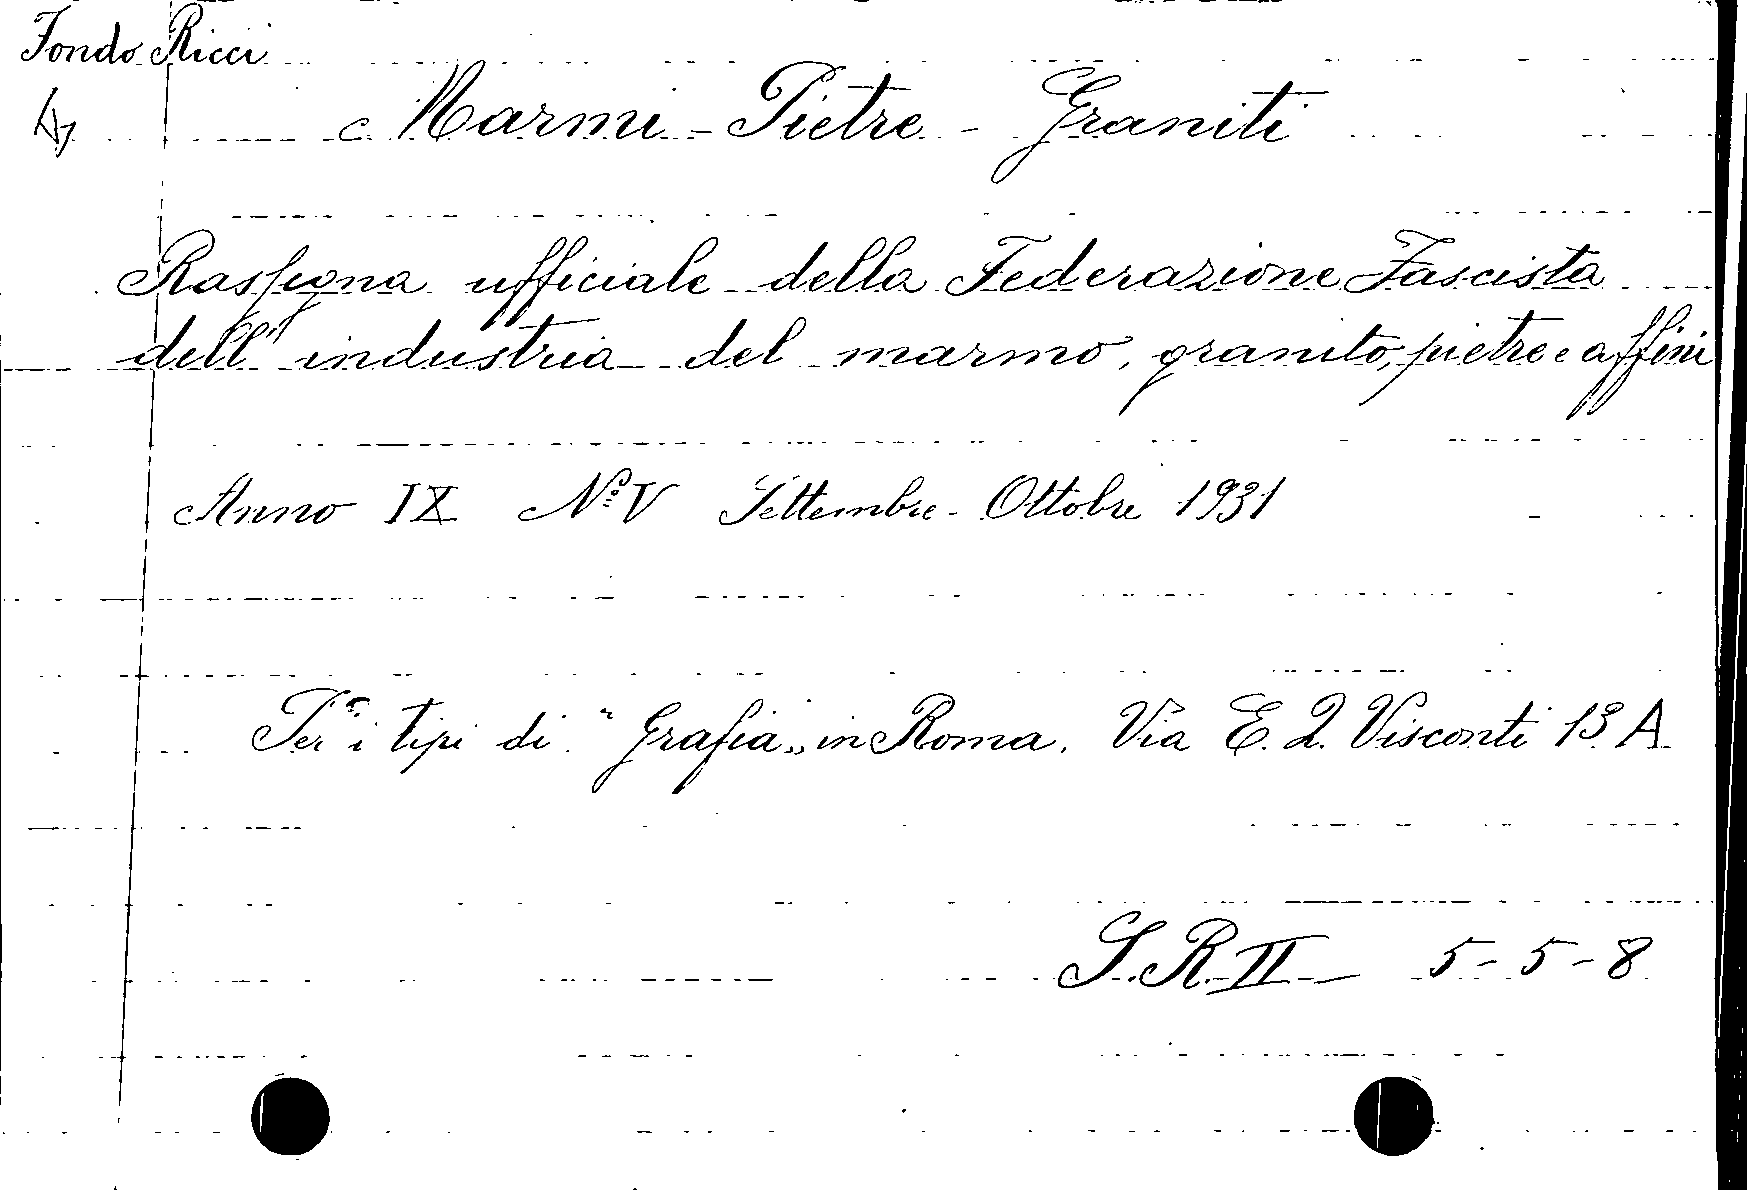 Fondo Ricci
Marmi - Pietre - Graniti
Rassegna ufficiale della Federazione Fascista
dell'industria del marmo, granito, pietre e affini
Anno IX N.º V Settembre - Ottobre 1931
Per i tipi di "Grafia" in Roma. Via E. Q. Visconti 13 A
S. R. II 5-5-8